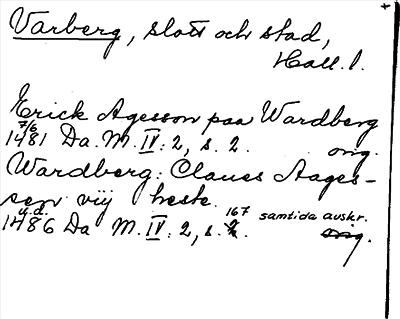 Varberg, slott och stad,
Hall. l.
Erick Agesson paa Wardberg
7/6
1481 Da. M. IV: 2, s. 2. orig.
Wardberg: Claues Aages-
sen viij heste.
u.d. 167 samtida avskr.
1486 Da M. IV: 2, s. orig.